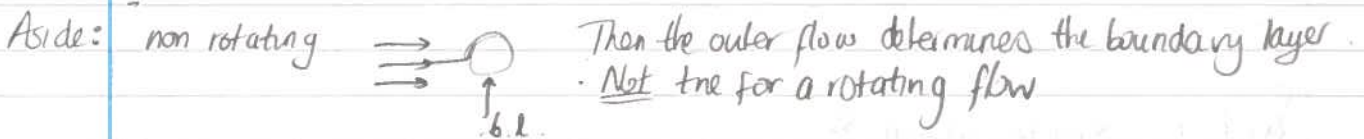 Aside: non rotating Then the outer flow determines the boundary layer.
· Not true for a rotating flow
b.l.